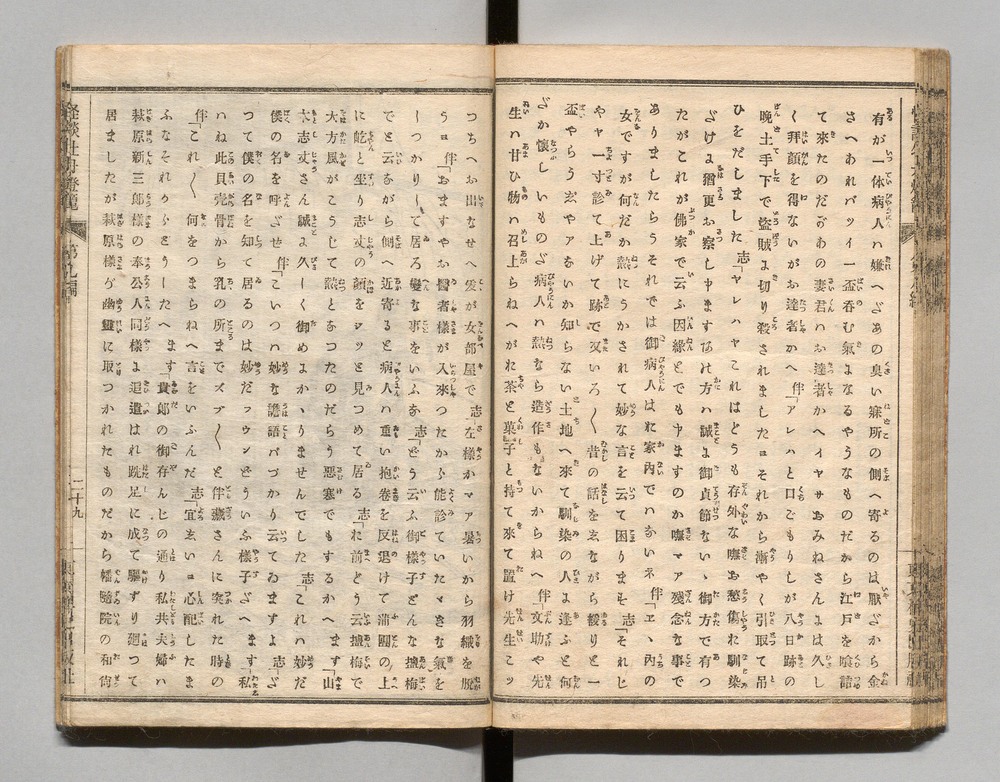 有が一体病人ハ嫌へざあの臭い寐所の側へ寄るのは厭ざから金
さへあれバツイ一盃呑む氣よなるやうなものだから江戸を喰詰
て來たのだがあの妻君ハお達者かへイヤサおみねさんよは久し
く拜顔を得ないがお達者かへ 伴「アレハと口ごもりしが八日跡の
晩土手下で盗賊よ切り殺されましたョそれから漸やく引取て吊
ひをだしました 志「ヤレハヤこれはどうも存外な嘸お愁傷れ馴染
ざけよ猶更お察し申ますぱけ方ハ誠よ御貞節ないゝ御方で有つ
たがこれが佛家で云ふ因縁とでも申ますのか嘸マア殘念な事で
ありましたらうそれでは御病人はれ家内でハあいネ 伴「エヽ內の
女ですが何だか熱にうかされて妙な言を云て困りまそ 志「それじ
やヤ一寸診て上げて跡で又いろ〱昔の話をゑながら緩りと一
盃やらうゑやアあいか知らない土地へ來て馴染の人よ逢ふと何
ざか懷しいものざ病人ハ熱なら造作もないからねへ 伴「文助や先
生ハ甘ひ物ハ召上らねへがれ茶と菓子と持て來て置け先生コッ
つちへお出なせへ爰が女部屋で 志「左樣かマア暑いから羽織を脱
うョ 伴「おますやお醫者樣が入來つたから能診ていたゞきな氣を
しつかりして居ろ變な事をいふあ 志「どう云ふ御樣子どんな塩梅
でと云ながら側へ近寄ると病人ハ重い抱卷を反退けて蒲團の上
に乾と坐り志丈の顔をジッと見つめて居る 志「れ前どう云塩梅で
大方風がこうじて熱とあつたのだらう惡寒でもするかへ ます「山
本志丈さん誠よ久しく御めよかゝりませんでした 志「これハ妙だ
僕の名を呼ざせ 伴「こいつハ妙な譫語バづかり云てゐますよ 志「ざ
つて僕の名を知て居るのは妙だフウンどういふ樣子ざへ ます「私
ハね此貝売骨から乳の所までズブ〱と伴藏さんに突れた時の
伴「これ〱何をつまらねへ言をいふんだ 志「宜ゑいョ心配したま
ふなそれからどうしたへ ます「貴郎の御存んじの通り私共夫婦ハ
萩原新三郎樣の奉公人同樣よ追遣はれ跣足に成て驅ずり廻つて
居ましたが萩原樣が幽靈に取つかれたものだから幡随院の和尙
怪談牡丹燈籠
第九編
二十九